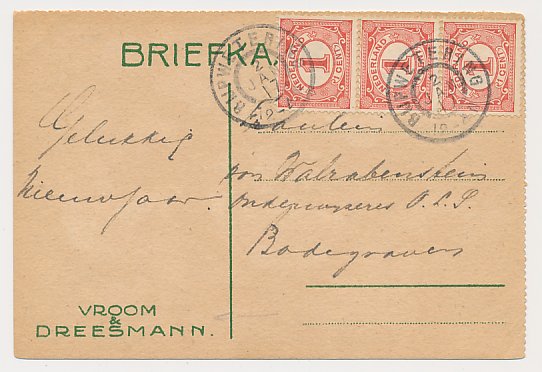 BRIEFKA
NEDERLAND 1 CENT
NEDERLAND 1 CENT
NEDERLAND 1 CENT
2 JAN 17
2 JAN
Gelukkig
Nieuwjaar.
van Walrabenstein
Onderwijzeres O. L. S.
Bodegraven
VROOM
&
DREESMANN.